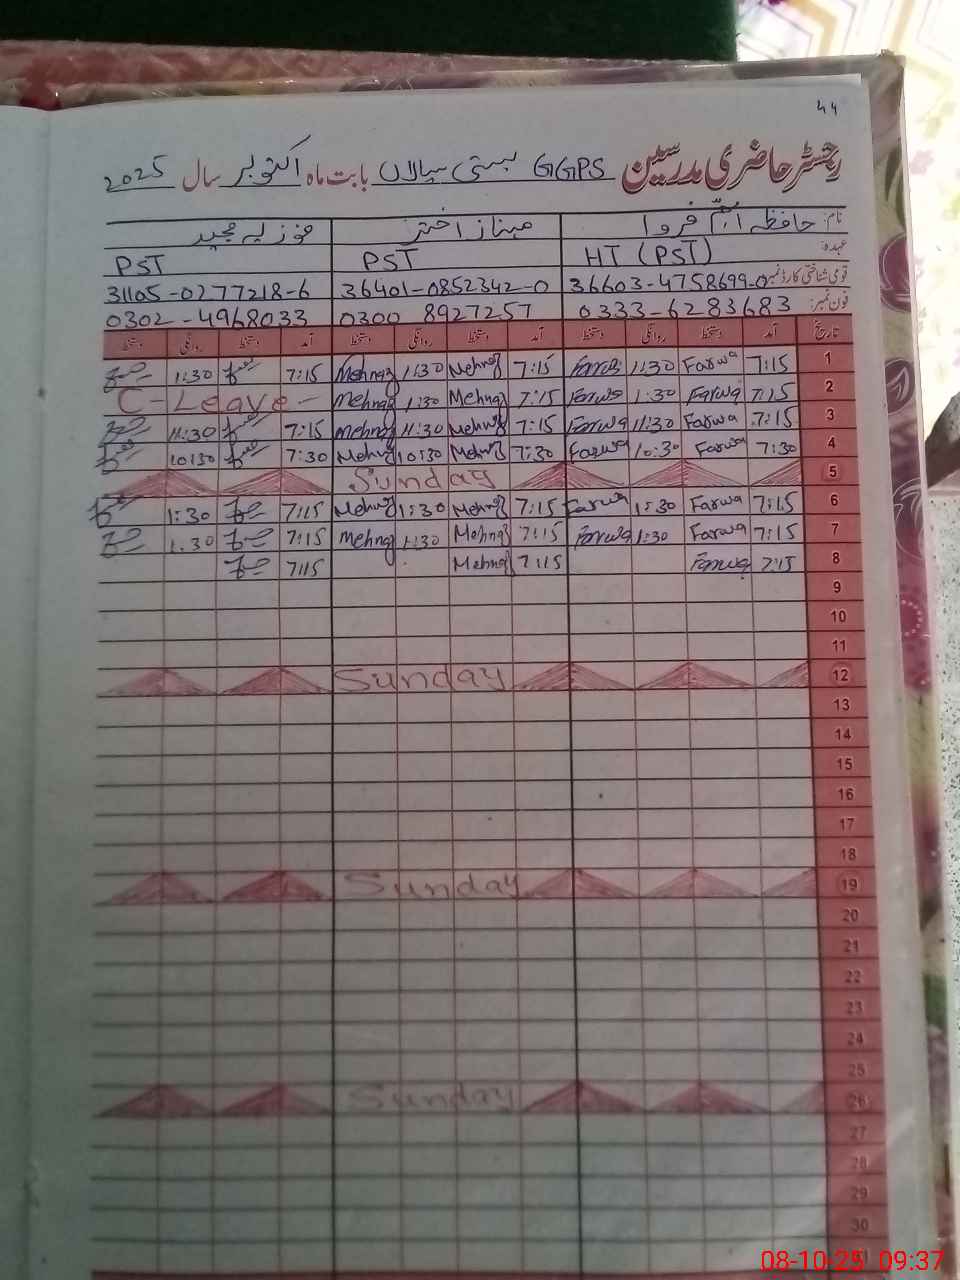 44
رجسٹر حاضری مدرسین GGPS بستی سپالاں بابت ماہ اکتوبر سال 2025
نام: حافظہ اُمِّ فروا مہناز اختر فوزیہ مجید
عہدہ: HT (PST) PST PST
قومی شناختی کارڈ نمبر 36603-4758699-0 36401-0852342-0 31105-0277218-6
فون نمبر: 0333-6283683 0300 8927257 0302-4968033
تاریخ آمد دستخط روانگی دستخط آمد دستخط روانگی دستخط آمد دستخط روانگی دستخط
1 7:15 Farwa 1:30 Farwa 7:15 Mehnaz 1:30 Mehnaz 7:15 1:30
2 7:15 Farwa 1:30 Farwa 7:15 Mehnaz 1:30 Mehnaz C-Leave-
3 7:15 Farwa 11:30 Farwa 7:15 Mehnaz 11:30 Mehnaz 7:15 11:30
4 7:30 Farwa 10:30 Farwa 7:30 Mehnaz 10:30 Mehnaz 7:30 10:30
5 Sunday
6 7:15 Farwa 1:30 Farwa 7:15 Mehnaz 1:30 Mehnaz 7:15 1:30
7 7:15 Farwa 1:30 Farwa 7:15 Mehnaz 1:30 Mehnaz 7:15 1:30
8 7:15 Farwa 7:15 Mehnaz 7:15
9
10
11
12 Sunday
13
14
15
16
17
18
19 Sunday
20
21
22
23
24
25
26 Sunday
27
28
29
30
31
08-10-25 09:37